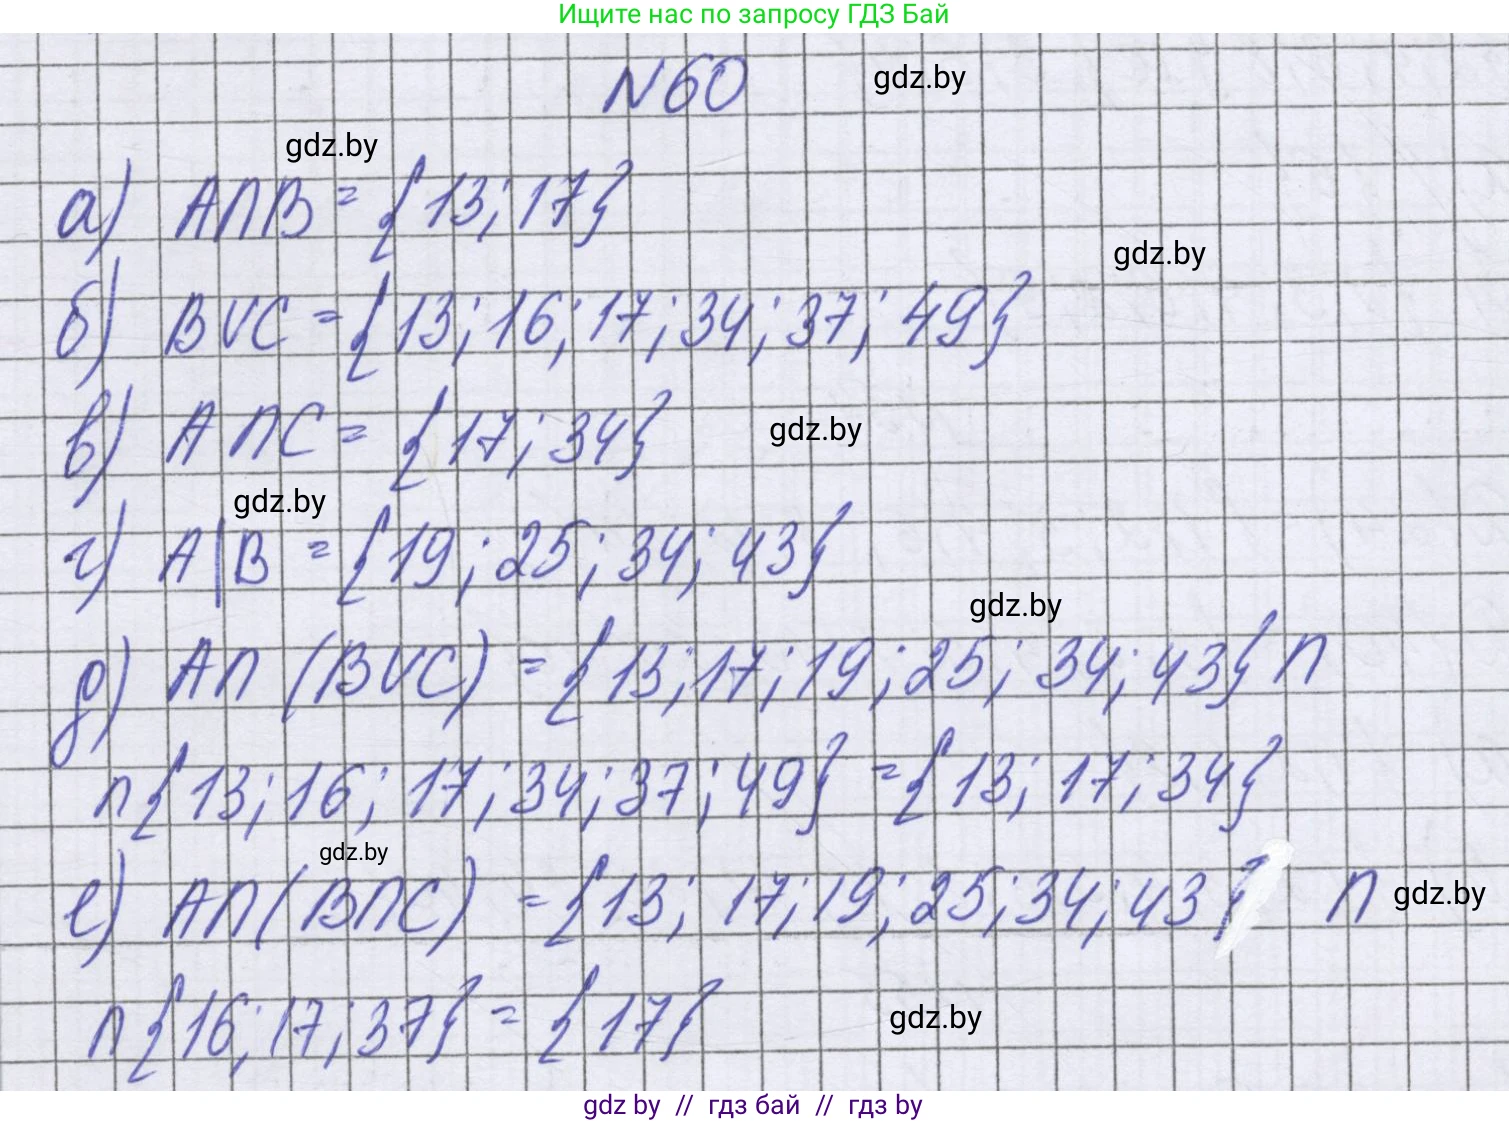 Ищите нас по запросу ГДЗ Бай
N60 gdz.by
gdz.by
а) A∩B = {13; 17}
gdz.by
б) B∪C = {13; 16; 17; 34; 37; 49}
в) A∩C = {17; 34} gdz.by
gdz.by
г) A|B = {19; 25; 34; 43}
gdz.by
д) A∩(B∪C) = {13; 17; 19; 25; 34; 43} ∩
∩{13; 16; 17; 34; 37; 49} = {13; 17; 34}
gdz.by
е) A∩(B∩C) = {13; 17; 19; 25; 34; 43} ∩ gdz.by
∩{16; 17; 37} = {17} gdz.by
gdz by // гдз бай // гдз by